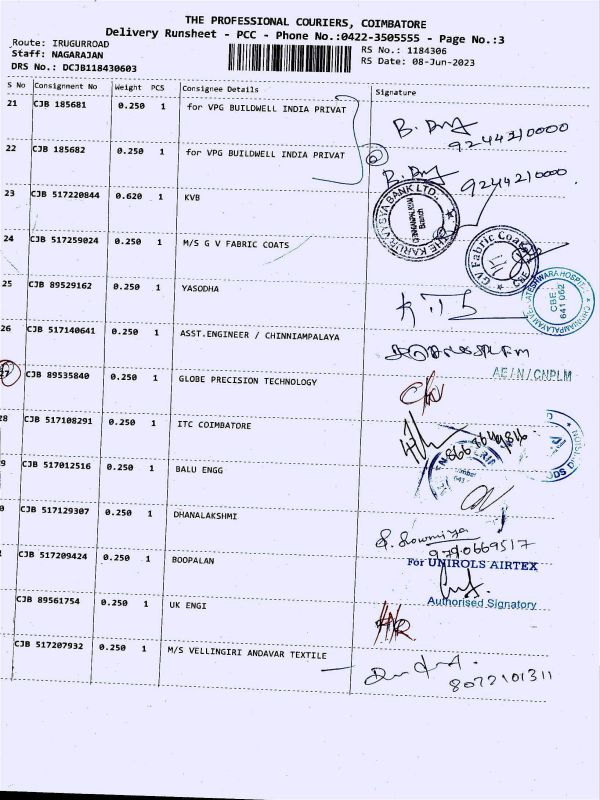 THE PROFESSIONAL COURIERS, COIMBATORE
Delivery Runsheet - PCC - Phone No.:0422-3505555 - Page No.:3
Route: IRUGURROAD
RS No.: 1184306
Staff: NAGARAJAN
RS Date: 08-Jun-2023
DRS No.: DCJB118430603
S No Consignment No Weight PCS Consignee Details Signature
21 CJB 185681 0.250 1 for VPG BUILDWELL INDIA PRIVAT
9244210000
22 CJB 185682 0.250 1 for VPG BUILDWELL INDIA PRIVAT
9244210000
23 CJB 517220844 0.620 1 KVB
THE KARUR VYSYA BANK LTD.,
Branch
24 CJB 517259024 0.250 1 M/S G V FABRIC COATS
GV Fabric Coats
CBE
25 CJB 89529162 0.250 1 YASODHA
CBE
641 062
26 CJB 517140641 0.250 1 ASST.ENGINEER / CHINNIAMPALAYA
AE/N/CNPLM
27 CJB 89535840 0.250 1 GLOBE PRECISION TECHNOLOGY
28 CJB 517108291 0.250 1 ITC COIMBATORE
9 CJB 517012516 0.250 1 BALU ENGG
0 CJB 517129307 0.250 1 DHANALAKSHMI
S. Sowmiya
9790669517
CJB 517209424 0.250 1 BOOPALAN
For UNIROLS AIRTEX
Authorised Signatory
CJB 89561754 0.250 1 UK ENGI
CJB 517207932 0.250 1 M/S VELLINGIRI ANDAVAR TEXTILE
8072101311